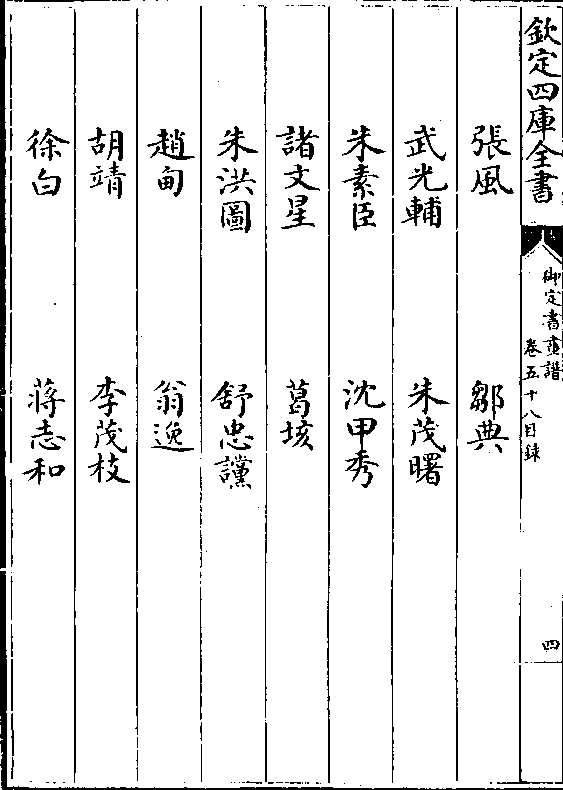 欽定四庫全書
御定書畫譜
卷五十八目錄
四
張風 鄒典
武光輔 朱茂曙
朱素臣 沈甲秀
諸文星 葛垓
朱洪圖 舒忠讜
趙甸 翁逸
胡靖 李茂枝
徐白 蔣志和